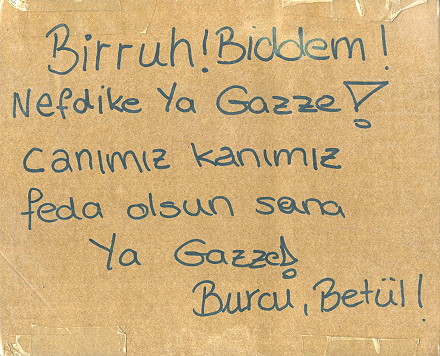 Birruh! Biddem!
Nefdike Ya Gazze!
canımız kanımız
feda olsun sana
Ya Gazze!
Burcu, Betül!